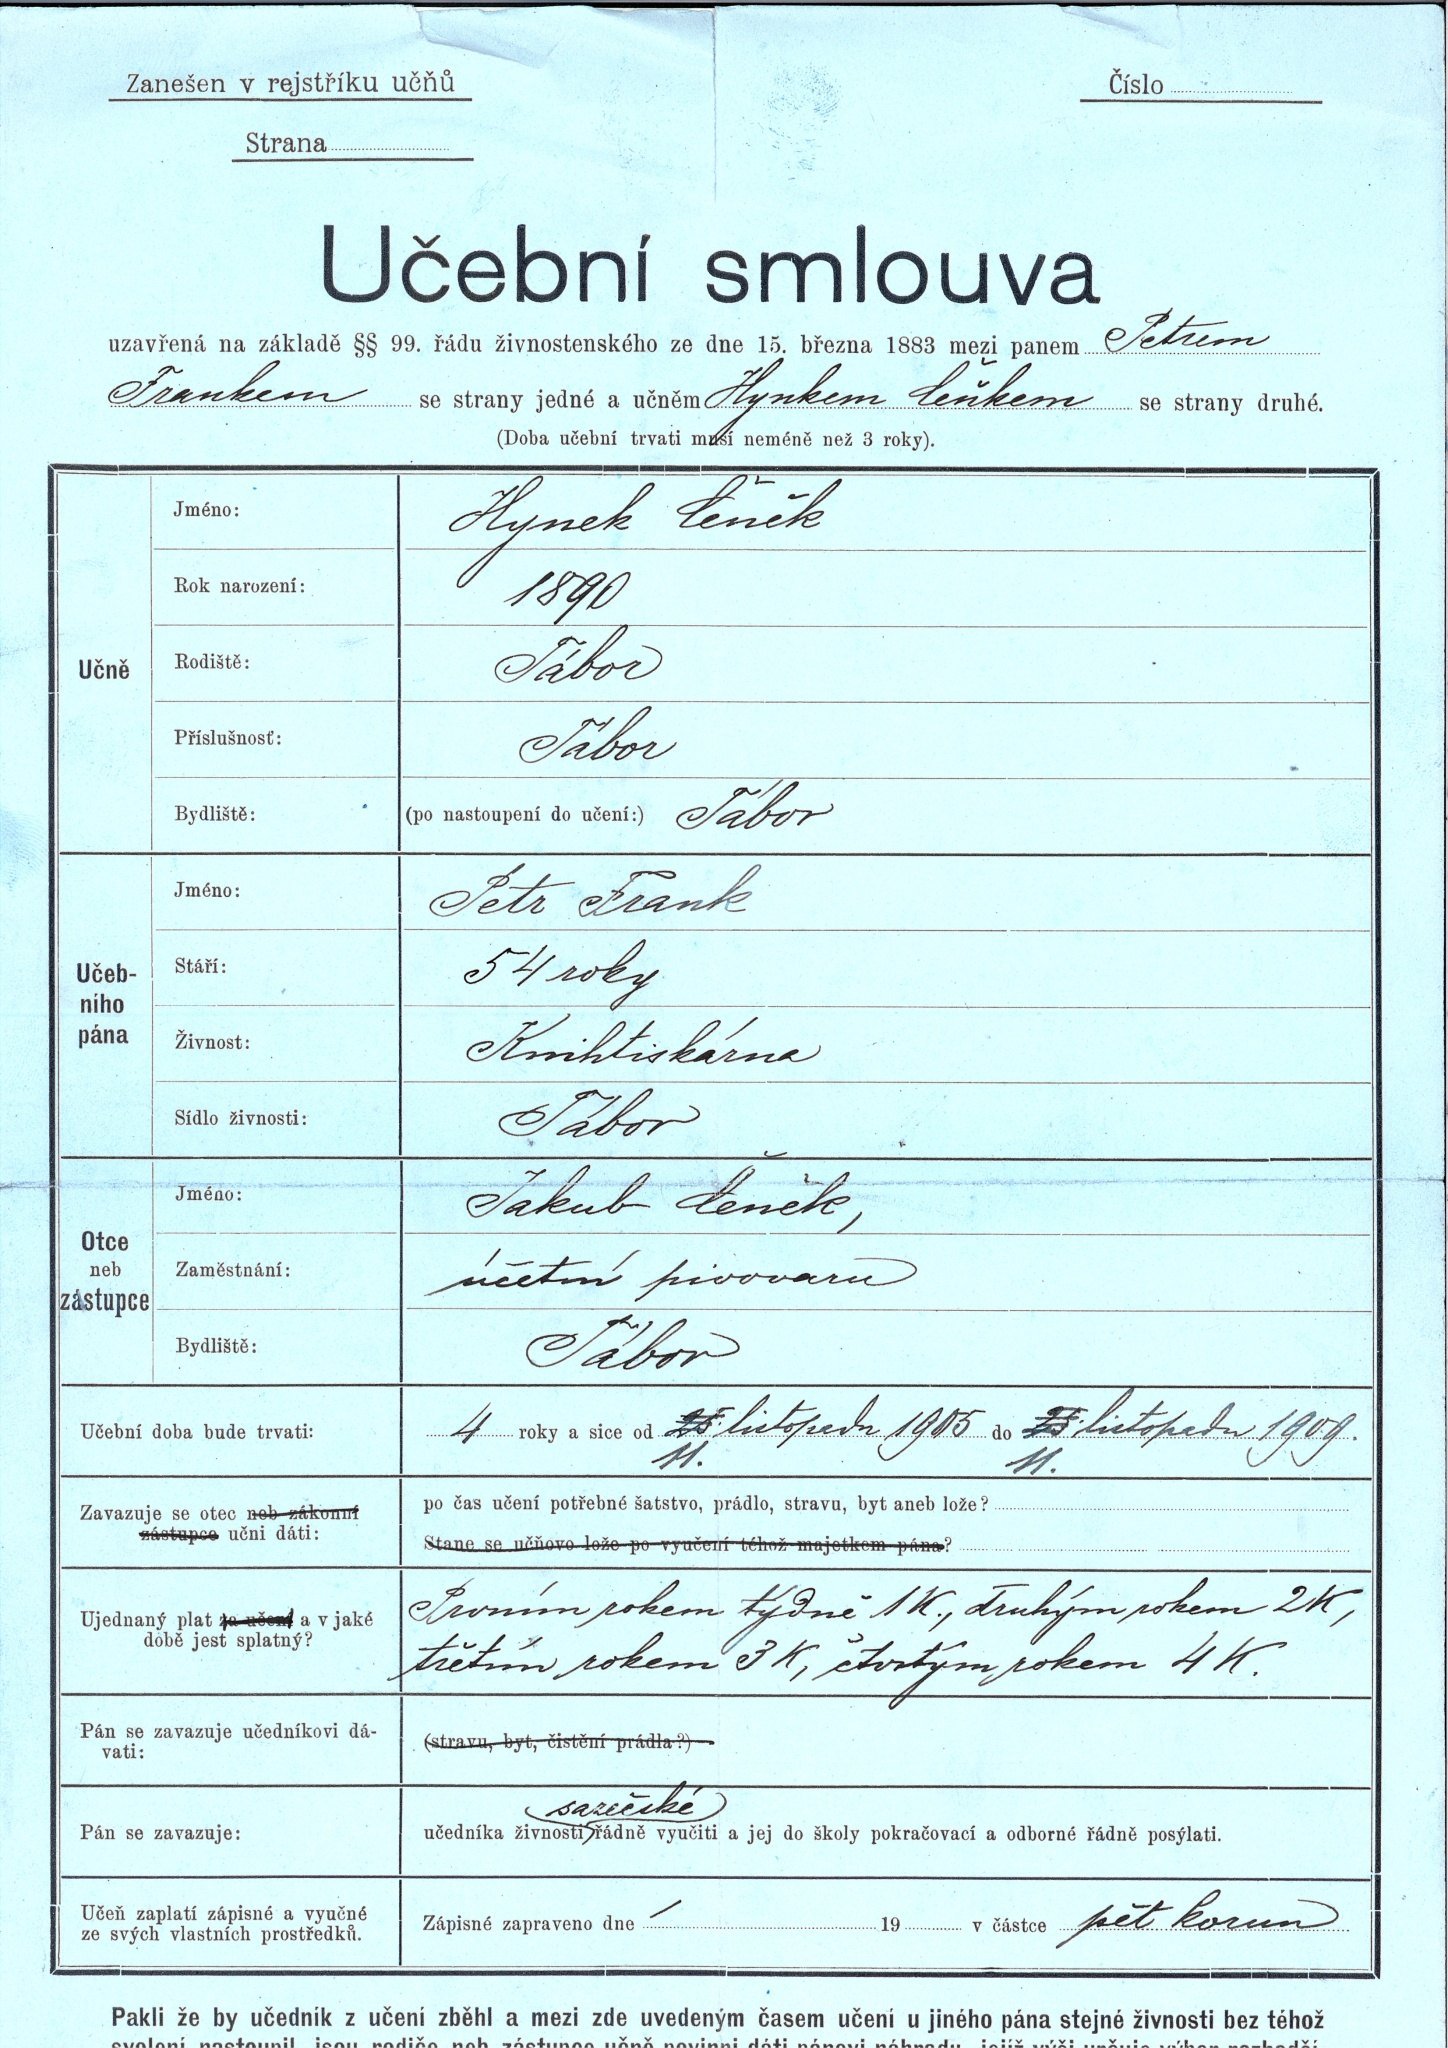 Zanešen v rejstříku učňů
Číslo
Strana
Učební smlouva
uzavřená na základě §§ 99. řádu živnostenského ze dne 15. března 1883 mezi panem Petrem
Frankem se strany jedné a učněm Hynkem Čeňkem se strany druhé.
(Doba učební trvati musí neméně než 3 roky).
Učně
Jméno: Hynek Čeněk
Rok narození: 1890
Rodiště: Tábor
Příslušnosť: Tábor
Bydliště: (po nastoupení do učení:) Tábor
Učeb-
ního
pána
Jméno: Petr Frank
Stáří: 54 roky
Živnost: Knihtiskárna
Sídlo živnosti: Tábor
Otce
neb
zástupce
Jméno: Jakub Čeněk,
Zaměstnání: účetní pivovaru
Bydliště: Tábor
Učební doba bude trvati: 4 roky a sice od listopadu 1905 do listopadu 1909.
11. 11.
Zavazuje se otec neb zákonní
zástupce učni dáti:
po čas učení potřebné šatstvo, prádlo, stravu, byt aneb lože?
Stane se učňovo lože po vyučení téhož majetkem pána?
Ujednaný plat za učení a v jaké
době jest splatný?
Prvním rokem týdně 1K., druhým rokem 2K,
třetím rokem 3K, čtvrtým rokem 4K.
Pán se zavazuje učedníkovi dá-
vati:
(stravu, byt, čistění prádla?)
Pán se zavazuje:
sazečské
učedníka živnosti řádně vyučiti a jej do školy pokračovací a odborné řádně posýlati.
Učeň zaplatí zápisné a vyučné
ze svých vlastních prostředků.
Zápisné zapraveno dne 19 v částce pět korun
Pakli že by učedník z učení zběhl a mezi zde uvedeným časem učení u jiného pána stejné živnosti bez téhož
svolení nastoupil, jsou rodiče neb zástupce učně povinni dáti pánovi náhradu, jejíž výši určuje výbor rozhodčí.